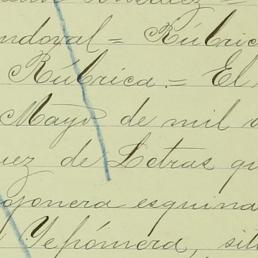 ndoval = Rúbric
Rúbrica = El
Mayo de mil
uez de Letras qu
ojonera esquina
Yepómera, sit